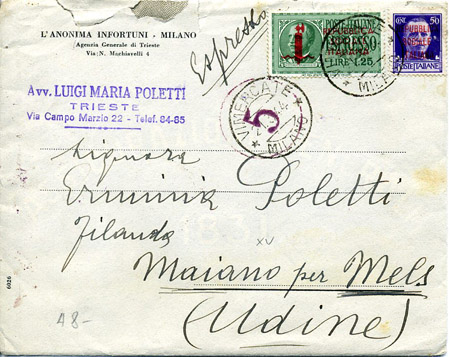 L'ANONIMA INFORTUNI - MILANO
Agenzia Generale di Trieste
Via: N. Machiavelli 4
Espresso
POSTE ITALIANE
ESPRESSO
LIRE 1,25
REPUBBLICA
SOCIALE
ITALIANA
CENT. 50
POSTE ITALIANE
Avv. LUIGI MARIA POLETTI
TRIESTE
Via Campo Marzio 22 - Telef. 84-85
* VIMERCATE *
MILANO
5
Signora
Erminia Poletti
Filanda
XV
Maiano per Mels
(Udine)
48-
6026